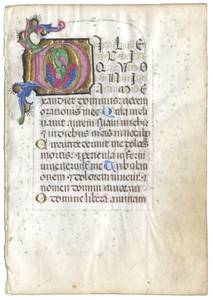 DILE
XI Q
VONI
AM E
xaudiet dominus vocem
orationis mee Quia incli
navit aurem suam michi
et in diebus meis invocabo
Circumdederunt me dolores
mortis et pericula inferni
invenerunt me Tribulati
onem et dolorem inveni et
nomen domini invocavi
O domine libera animam